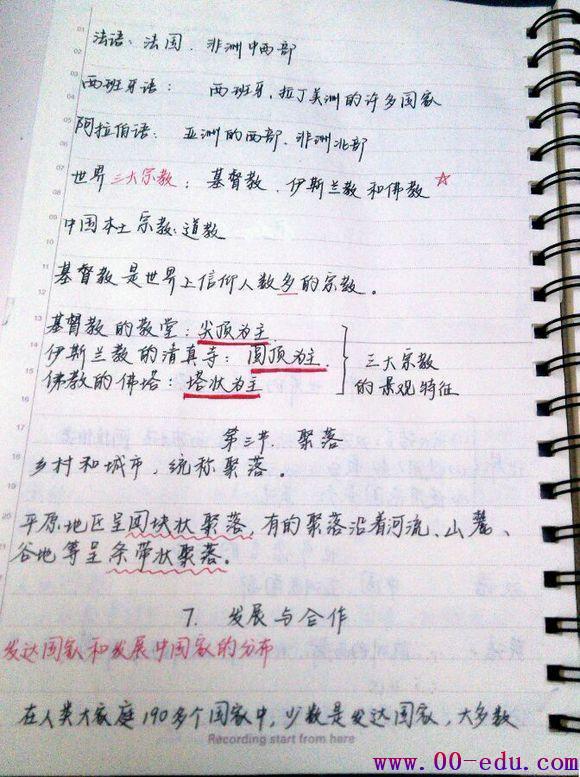 法语：法国、非洲中西部
西班牙语：西班牙，拉丁美洲的许多国家
阿拉伯语：亚洲的西部、非洲北部
世界三大宗教：基督教、伊斯兰教和佛教☆
中国本土宗教：道教
基督教是世界上信仰人数多的宗教。
基督教的教堂：尖顶为主
伊斯兰教的清真寺：圆顶为主.
佛教的佛塔：塔状为主
三大宗教
的景观特征
第三节、聚落
乡村和城市，统称聚落.
平原地区呈团块状聚落，有的聚落沿着河流、山麓、
谷地等呈条带状聚落。
7. 发展与合作
发达国家和发展中国家的分布
在人类大家庭190多个国家中，少数是发达国家，大多数
Recording start from here
www.00-edu.com